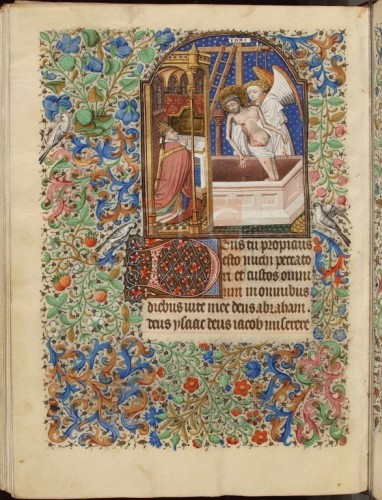 INRI
Deus tu propicius
esto michi peccato
ri et custos omni
um in omnibus
diebus vite mee deus abraham.
deus ysaac deus iacob miserere